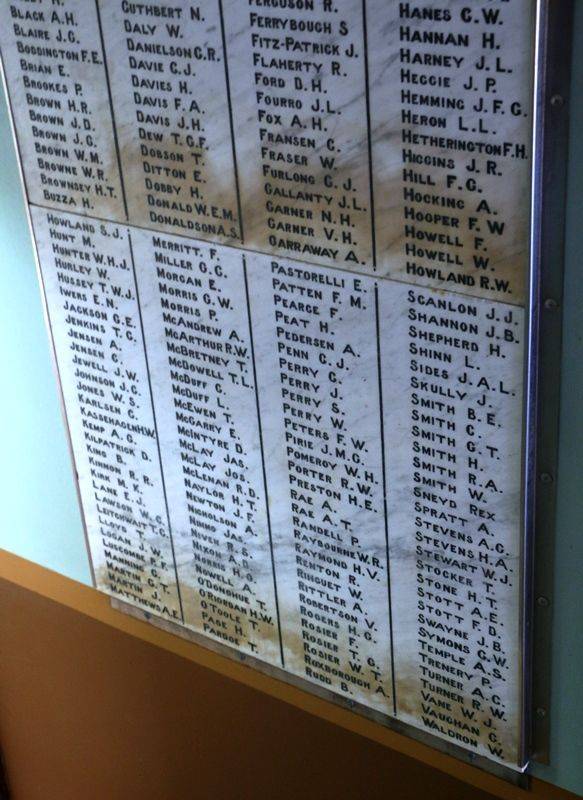 BLACK A.H.
BLAIRE J.G.
BODDINGTON F.E.
BRIAN E.
BROOKES P.
BROWN H.R.
BROWN J.D.
BROWN J.G.
BROWN W.M.
BROWNE W.R.
BROWNSEY H.T.
BUZZA H.
CUTHBERT N.
DALY W.
DANIELSON C.R.
DAVIE C.J.
DAVIES H.
DAVIS F.A.
DAVIS J.H.
DEW T.G.F.
DOBSON T.
DITTON E.
DOBBY H.
DONALD W.E.M.
DONALDSON A.S.
FERGUSON R.
FERRYBOUGH S
FITZ-PATRICK J.
FLAHERTY R.
FORD D.H.
FOURRO J.L.
FOX A.H.
FRANSEN C.
FRASER W.
FURLONG C.J.
GALLANTY J.L.
GARNER N.H.
GARNER V.H.
GARRAWAY A.
HANES G.W.
HANNAN H.
HARNEY J.L.
HEGGIE J.P.
HEMMING J.F.G.
HERON L.L.
HETHERINGTON F.H.
HIGGINS J.R.
HILL F.G.
HOCKING A.
HOOPER F.W
HOWELL F.
HOWELL W.
HOWLAND R.W.
HOWLAND S.J.
HUNT M.
HUNTER W.H.J.
HURLEY W.
HUSSEY T.W.J.
IWERS E.N.
JACKSON G.E.
JENKINS T.C.
JENSEN A.
JENSEN C.
JEWELL J.W.
JOHNSON J.G.
JONES W.S.
KARLSEN C.
KASSEHAGEN H.W.
KEMP A.G.
KILPATRICK D.
KING B.
KINMON R.R.
KIRK M.K.
LANE E.J.
LAWSON W.G.
LEITCHWAIT T.G.
LLOYD T.
LOGAN J.W.
LUSCOMBE F.F.
MANNING G.
MARTIN G.T.
MARTIN J.
MATTHEWS A.E.
MERRITT. F.
MILLER G.C.
MORGAN E.
MORRIS G.W.
MORRIS P.
MCANDREW A.
MCARTHUR R.W.
MCBRETNEY T.
MCDOWELL T.L.
MCDUFF C.
MCDUFF L.
MCEWEN T.
MCGARRY E.
MCINTYRE D.
MCLAY JAS.
MCLAY JOS.
MCLENAN R.D.
NAYLOR H.T.
NEWTON J.F.
NICHOLSON A.
NIMMO JAS.
NIVEN R.S.
NIXON A.D.
NORRIE H.G.
NOWELL A.
O'DONOHUE T.
O'RIORDAN H.W.
O'TOOLE T.
PAGE H.
PARDOE T.
PASTORELLI E.
PATTEN F.M.
PEARCE F.
PEAT H.
PEDERSEN A.
PENN C.J.
PERRY G.
PERRY J.
PERRY S.
PERRY W.
PETERS F.W.
PIRIE J.M.G.
POMEROY W.H.
PORTER R.W.
PRESTON H.E.
RAE A.
RAE A.T.
RANDELL P.
RAYBOURNE W.R.
RAYMOND H.V.
RENTON R.
RINGUET W.
RITTLER A.
ROBERTSON V.
ROGERS H.G.
ROSIER F.
ROSIER T.G.
ROSIER W.T.
ROXBOROUGH A.
RUDD B.
SCANLON J.J.
SHANNON J.B.
SHEPHERD H.
SHINN L.
SIDES J.A.L.
SKULLY J.
SMITH B.E.
SMITH C.
SMITH G.T.
SMITH H.
SMITH R.A.
SMITH W.
SNEYD REX
SPRATT A.
STEVENS A.G.
STEVENS H.A.
STEWART W.J.
STOCKER T.
STONE H.T.
STOTT A.E.
STOTT F.D.
SWAYNE J.B.
SYMONS G.W.
TEMPLE A.S.
TRENERY P.
TURNER A.C.
TURNER R.W.
VANE W.J.
VAUGHAN C.
WALDRON W.